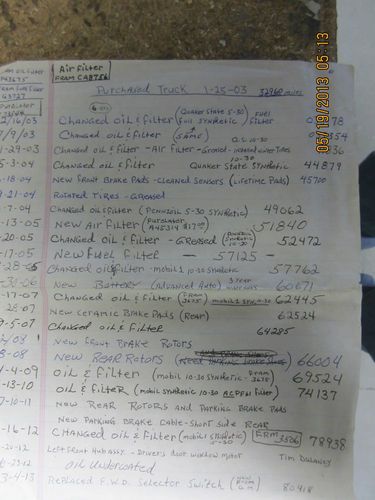 05/19/2013 05:13
Air Filter
FRAM CA8756
Purchased Truck 1-25-03 32960 miles
2/16/03 Changed oil & filter (Quaker State 5-30 Full Synthetic) Fuel Filter
7/9/03 Changed oil & filter (SAME)
1-29-03 Changed oil & filter - Air Filter - Greased - rotated over tires Q.S. 10-30
5-3-04 Changed oil & filter Quaker State 10-30 Synthetic 44879
-18-04 New Front Brake Pads - Cleaned Sensors (Lifetime Pads) 45700
9-21-04 Rotated Tires - Greased
-7-04 Changed oil & filter (Pennzoil 5-30 Synthetic) 49062
-13-05 New Air Filter (Purolator A45314 $17.00) 51840
-20-05 Changed oil & Filter - Greased (10-30) 52472
-17-05 New Fuel Filter - 57125 -
-28-05 Changed oil & filter - mobil 1 10-30 Synthetic 57762
-30-06 New Battery (Advanced Auto) 3 year 60671
-17-07 Changed oil & Filter (FRAM 3675) mobil 1 syn. 10-30 62445
-07 New Ceramic Brake Pads (Rear) 62524
9-5-07 Changed oil & filter 64285
/08 New Front Brake Rotors
-8-08 New Rear Rotors 66004
-4-09 Oil & Filter (mobil 10-30 Synthetic - FRAM 3675) 69524
-13-10 Oil & Filter (mobil Synthetic 10-30 AC Delco Filter) 74137
7-10-11 New Rear Rotors and Parking Brake Pads
New Parking Brake Cable - Short Side Rear
-16-12 Changed oil & Filter (mobil 1 Synthetic 5-30) FRM 3506 78938
-20-12 Left Front Hub Assy. - Drivers door window motor Tim Dulaney
6-23-12 Oil Undercoated
3-4-13 Replaced F.W.D. Selector Switch (New From G.M.) 80418